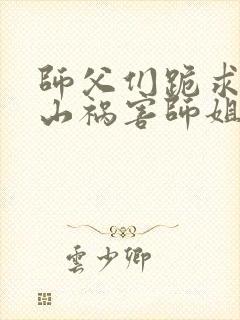 師父们跪求
山祸害師姐
雲少卿